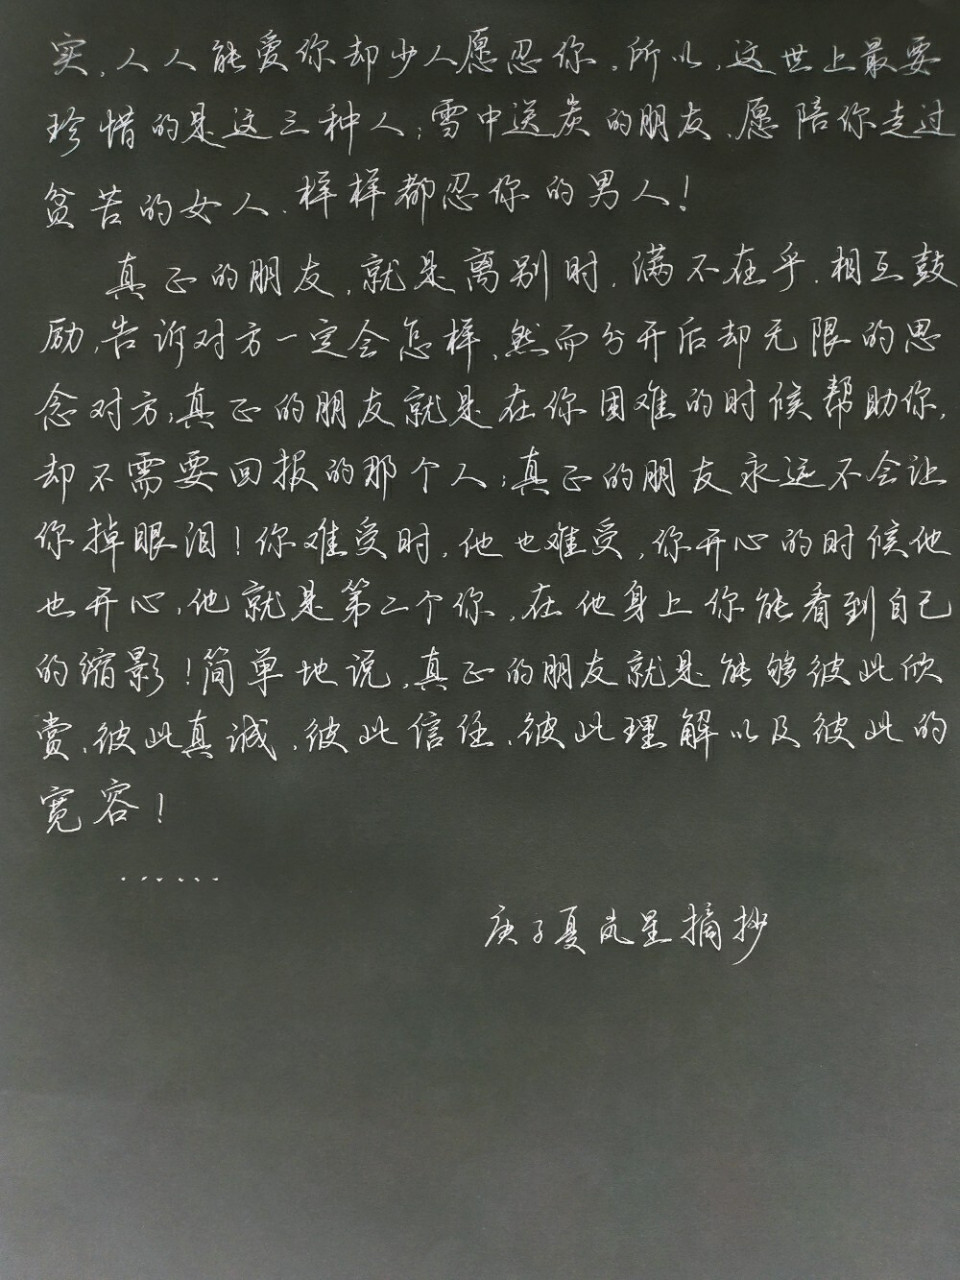 实，人人能爱你却少人愿忍你。所以，这世上最要
珍惜的是这三种人；雪中送炭的朋友、愿陪你走过
贫苦的女人、样样都忍你的男人！
真正的朋友，就是离别时，满不在乎，相互鼓
励，告诉对方一定会怎样，然而分开后却无限的思
念对方；真正的朋友就是在你困难的时候帮助你，
却不需要回报的那个人；真正的朋友永远不会让
你掉眼泪！你难受时，他也难受，你开心的时候他
也开心，他就是第二个你，在他身上你能看到自己
的缩影！简单地说，真正的朋友就是能够彼此欣
赏、彼此真诚、彼此信任、彼此理解以及彼此的
宽容！
······
庚子夏岚星摘抄